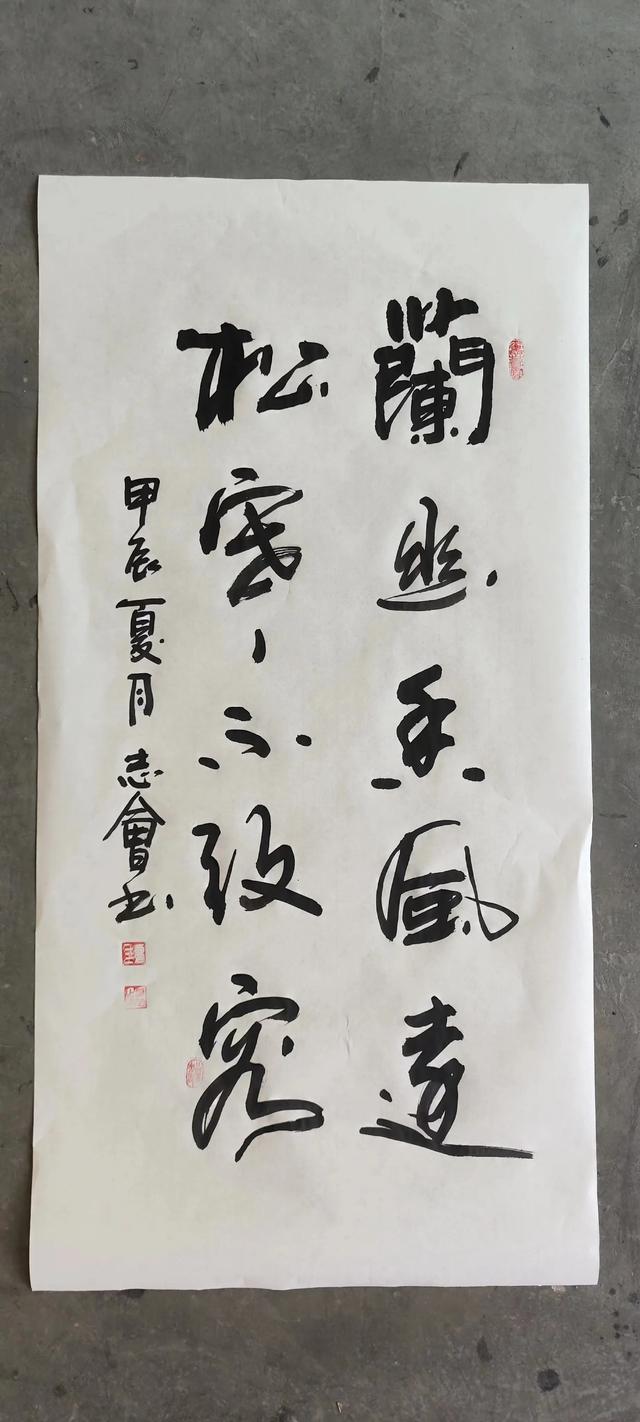 蘭幽香風遠
松寒不改容
甲辰夏月志會书